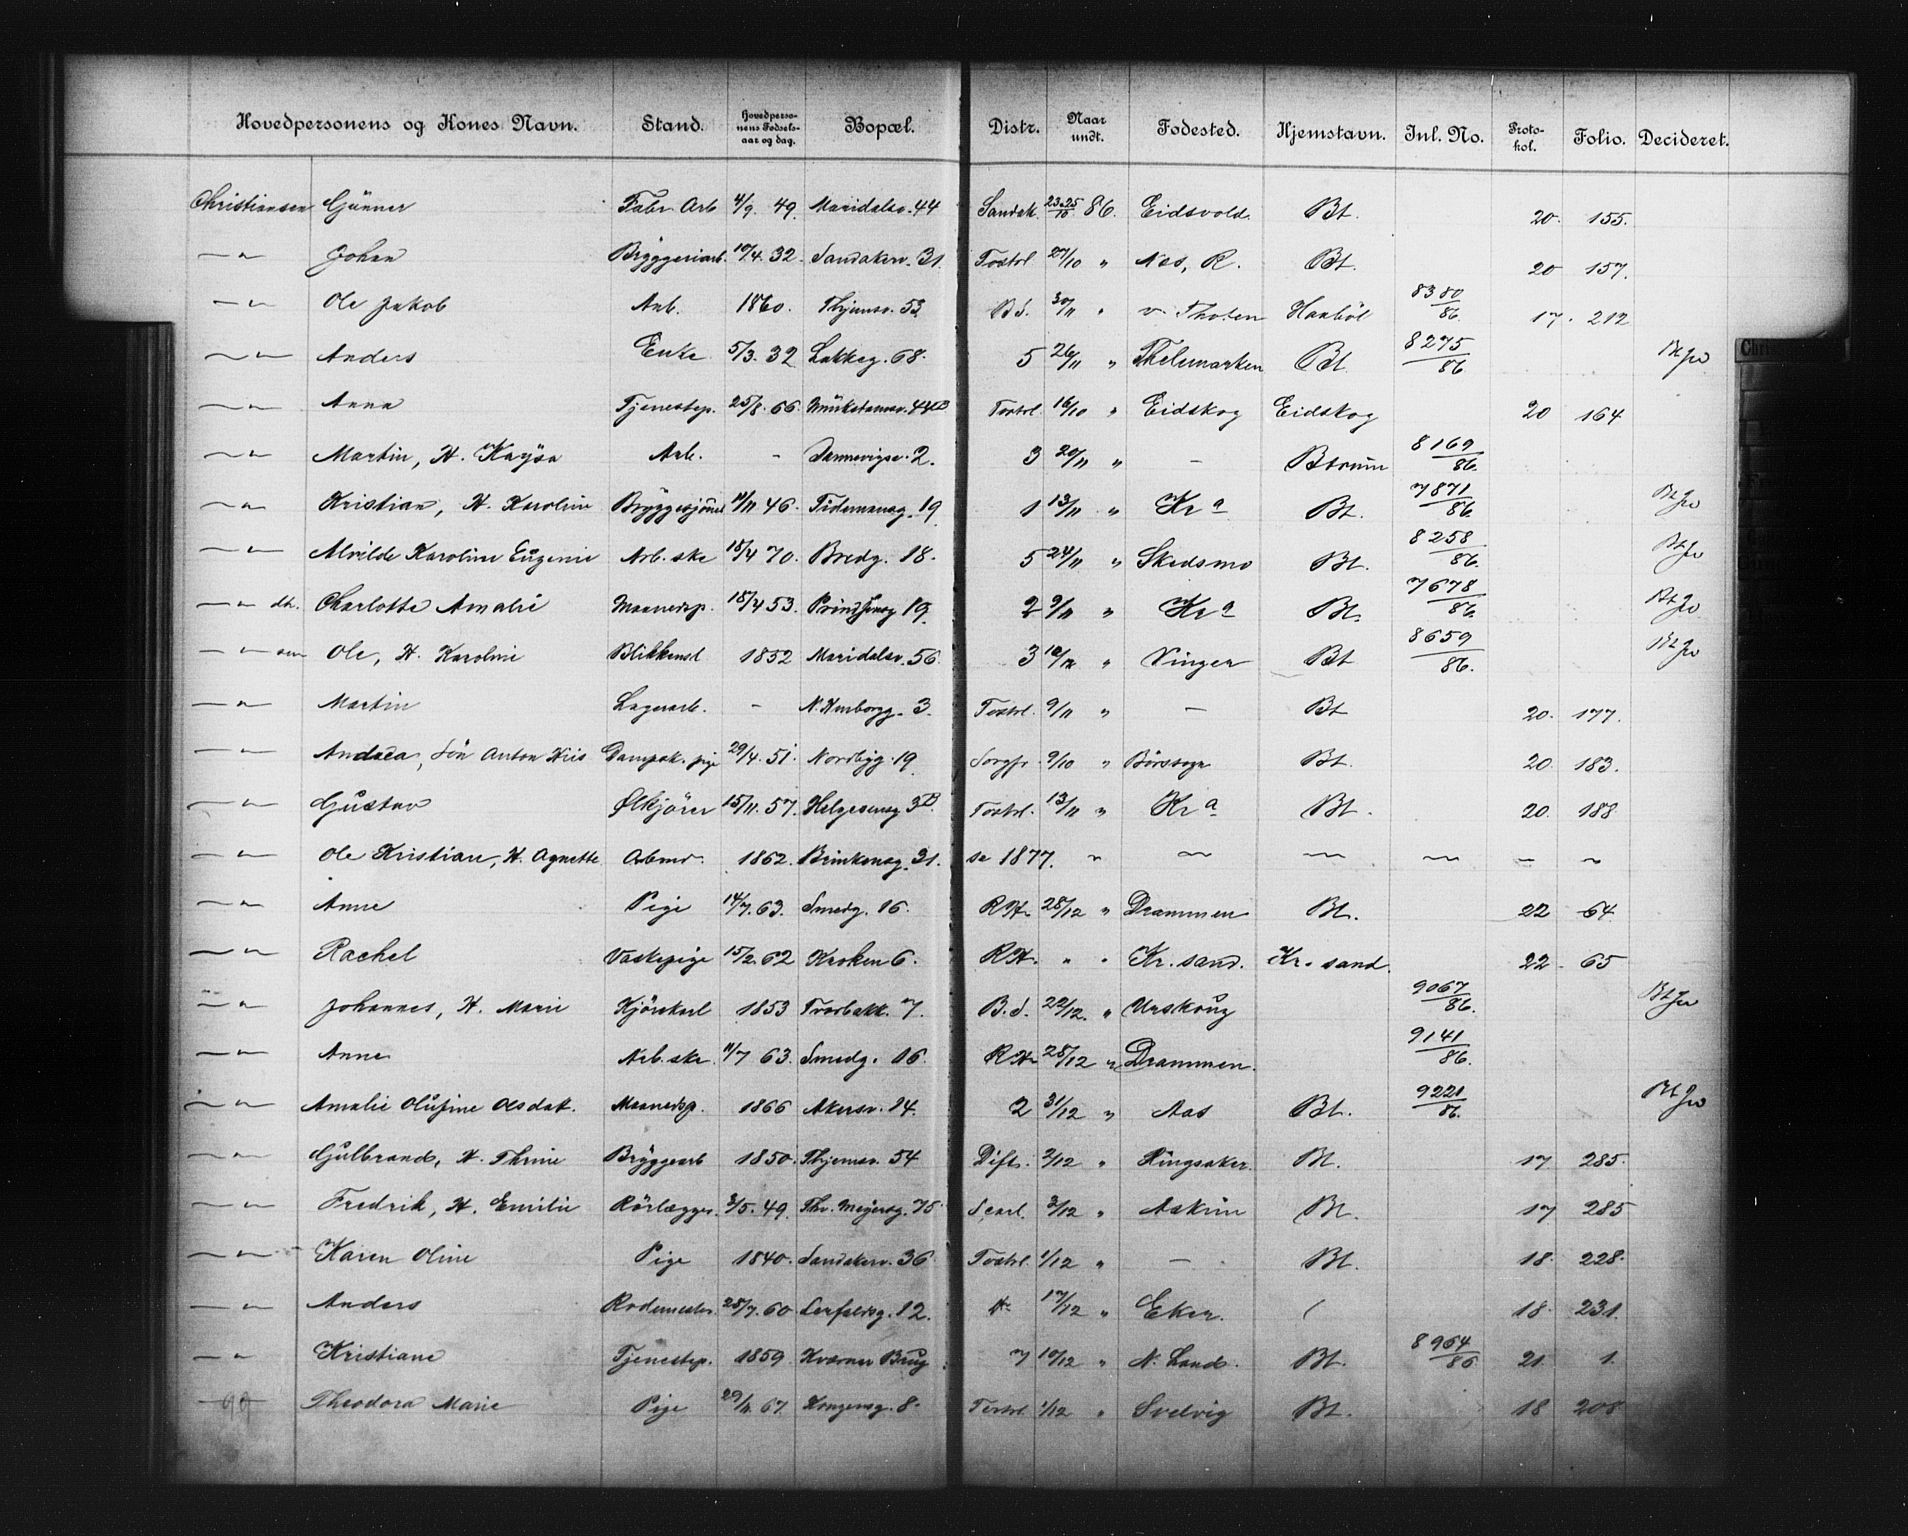 Hovedpersonens og Kones Navn. Stand. Hovedpersonens Fødselsaar og dag. Bopæl. Distr. Naar undt. Fødested. Hjemstavn. Jnl. No. Protokol. Folio. Decideret.
Christiansen Günner Fabr. Arb 4/9. 49. Maridalsv. 44 Sandak. 23.25/10 86. Eidsvold. Bt. 20. 155.
—"— Johan Bryggeriarb. 10/4. 32. Sandakerv. 31. Tostrl. 27/10 " Nes, R. Bt. 20 157.
—"— Ole Jakob Arb. 1860. Thjemsv. 53. B.d. 30/11 " v. Thoten Haabøl 8380/86. 17. 212
—"— Anders Enke 5/3. 32 Lakkeg. 68. 5 26/11 " Thelemarken Bt. 8275/86
—"— Anna Tjenestep. 25/8. 66. Munkedamsv. 44B Tostrl. 16/10 " Eidskog Eidskog 20 164
—"— Martin, H. Kaysa Arb. - Dannevigsv. 2. 3 20/11 " — Bærum 8169/86.
—"— Kristian, H. Karoline 11/11 46. Tidemansg. 19 1 13/11 " Kra Bt. 7871/86
—"— Alvilde Karoline Eugenie Arb. ske 18/4 70. Bredg. 18. 5 24/11 " Skedsmo Bt. 8258/86.
—"— dtr. Charlotte Amalie Maanedsp. 18/4 53. Prindsensg 19. 2 9/11 " Kra Bt. 7678/86.
—"— sen Ole, H. Karoline Blikkensl. 1852 Maridalsv. 56. 3 10/12 " Vinger Bt 8659/86.
—"— Martin Lagerarb. - N. 3. Tostrl. 9/11 " — Bt 20. 177.
—"— Andrea, Søn Anton Kris Dampsk. pige 29/4. 51. Nordbyg. 19. Sorgfr. 9/10 " Børssogn Bt. 20. 183.
—"— Gustav Ølkjører 15/11. 57. Helgesensg 3B. Tostrl. 13/11 " Kra Bt. 20. 188
—"— Ole Kristian, H. Agnette Arbmd. 1862. Brinkensg. 31. se 1877. " — — — — —
—"— Anne Pige 14/7. 63. Smedg. 16. RH. 28/12 " Drammen Bt. 22 64
—"— Rachel Vaskepige 15/2. 62 Kroken 6. RH. " " Kr. sand. Kr. sand. 22. 65
—"— Johannes, H. Marie Kjørekarl 1853 Tvorbakk. 7. B.d. 22/12. " Urskoug 9067/86.
—"— Anne Arb. ske. 11/7 63. Smedg. 16. RH 28/12 " Drammen. 9141/86.
—"— Amalie Olufine Olsdat. Maanedsp. 1866 Akersv. 14. 2 31/12 " Aas Bt. 9221/86.
—"— Gulbrand, H. Thrine Bryggearb 1850. Thjemsv. 54 Dift. 2/12 " Ringsaker. Bt. 17 285.
—"— Fredrik, H. Emilie Rörlægger. 3/5. 49. Thv. Meyersg. 75 Scarl. 3/12 " Askim Bt. 17 285
—"— Karen Oline Pige 1840. Sandakerv. 36. Tostrl. 1/12 " — Bt. 18. 228.
—"— Anders Rodemester 25/7. 60. 12. 17/12 " Eker. 18. 231.
—"— Kristiane Tjenestep. 1859. Kværner Brug 7 10/12 " N. Land. Bt. 8964/86 21. 1.
Theodora Marie Pige 29/11. 67. Kongensg. 8. Tostrl 1/12 " Svelvig Bt. 18 208